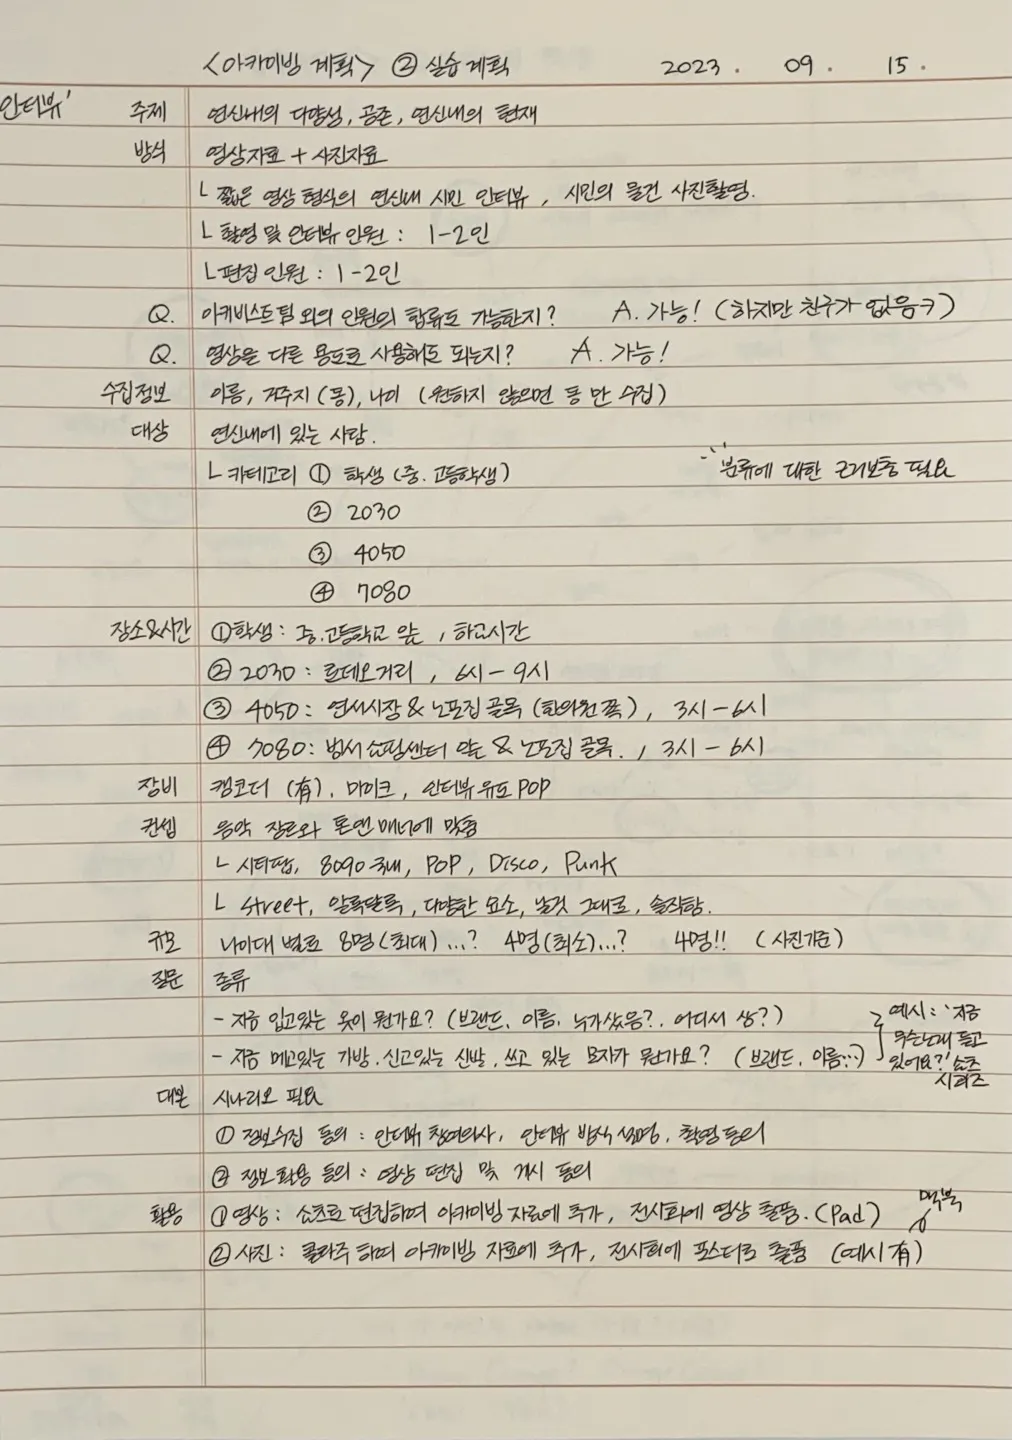 <아카이빙 계획> ② 실습 계획 2023. 09. 15.
인터뷰'
주제 연신내의 다양성, 공존, 연신내의 현재
방식 영상자료 + 사진자료
└ 짧은 영상 형식의 연신내 시민 인터뷰, 시민의 물건 사진촬영.
└ 촬영 및 인터뷰 인원 : 1-2인
└ 편집 인원 : 1-2인
Q. 아키비스트팀 외의 인원의 합류도 가능한지? A. 가능! (하지만 친구가 없음ㅋ)
Q. 영상을 다른 용도로 사용해도 되는지? A. 가능!
수집정보 이름, 거주지(동), 나이 (원하지 않으면 동만 수집)
대상 연신내에 있는 사람.
└ 카테고리 ① 학생 (중.고등학생) 분류에 대한 근거보충 필요
② 2030
③ 4050
④ 7080
장소&시간 ①학생 : 중.고등학교 앞, 하교시간
② 2030 : 로데오거리, 6시-9시
③ 4050 : 연서시장 & 노포집 골목 (한의원 쪽), 3시-6시
④ 7080 : 범서쇼핑센터 앞 & 노포집 골목., 3시-6시
장비 캠코더 (有). 마이크, 인터뷰 유도 POP
컨셉 음악 장르와 톤앤매너에 맞춤
└ 시티팝, 8090 국내, POP, Disco, Punk
└ Street, 알록달록, 다양한 요소, 날것 그대로, 솔직함.
규모 나이대 별로 8명(최대)...? 4명(최소)...? 4명!! (사진기준)
질문 종류
- 지금 입고있는 옷이 뭔가요? (브랜드. 이름. 누가샀음?. 어디서 삼?)
- 지금 메고있는 가방. 신고있는 신발. 쓰고 있는 모자가 뭔가요? (브랜드. 이름...)
예시 : '지금
무슨노래 듣고
있어요?' 쇼츠
시리즈
대본 시나리오 필요
① 정보수집 동의 : 인터뷰 참여의사, 인터뷰 방식 설명, 촬영 동의
② 정보 활용 동의 : 영상 편집 및 게시 동의
활용 ① 영상 : 쇼츠로 편집하여 아카이빙 자료에 추가, 전시회에 영상 출품. (Pad) 맥북
② 사진 : 콜라주 하여 아카이빙 자료에 추가, 전시회에 포스터로 출품 (예시 有)